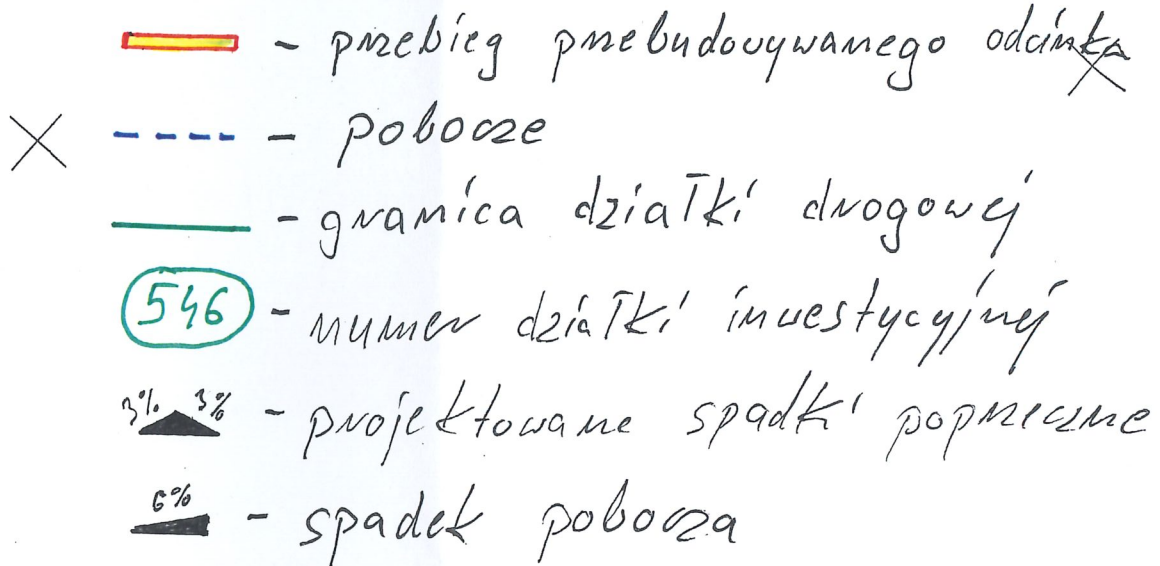 - przebieg przebudowywanego odcinka
- pobocze
- granica działki drogowej
546 - numer działki inwestycyjnej
3% 3% - projektowane spadki poprzeczne
6% - spadek pobocza